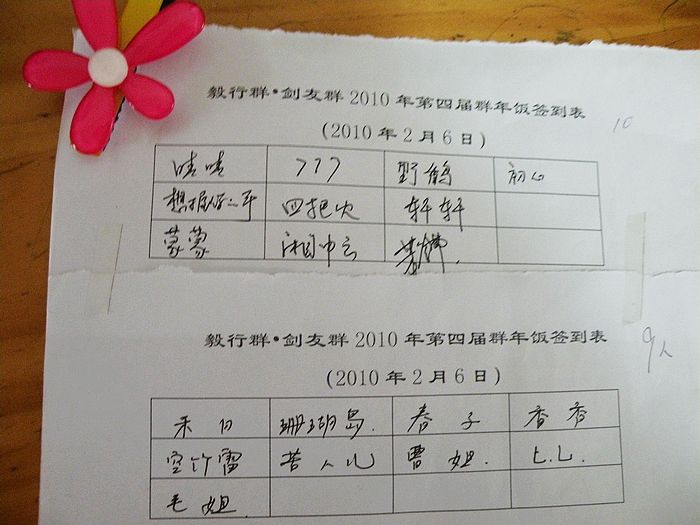 毅行群·剑友群 2010 年第四届群年饭签到表
10
(2010 年 2 月 6 日)
哇哇 777 野鹤 初心
四把火 轩轩
蒙蒙 湘中云
毅行群·剑友群 2010 年第四届群年饭签到表
9人
(2010 年 2 月 6 日)
禾日 珊瑚岛. 春子 香香
空竹雷 苦人儿 曹姐. L.L.
毛姐